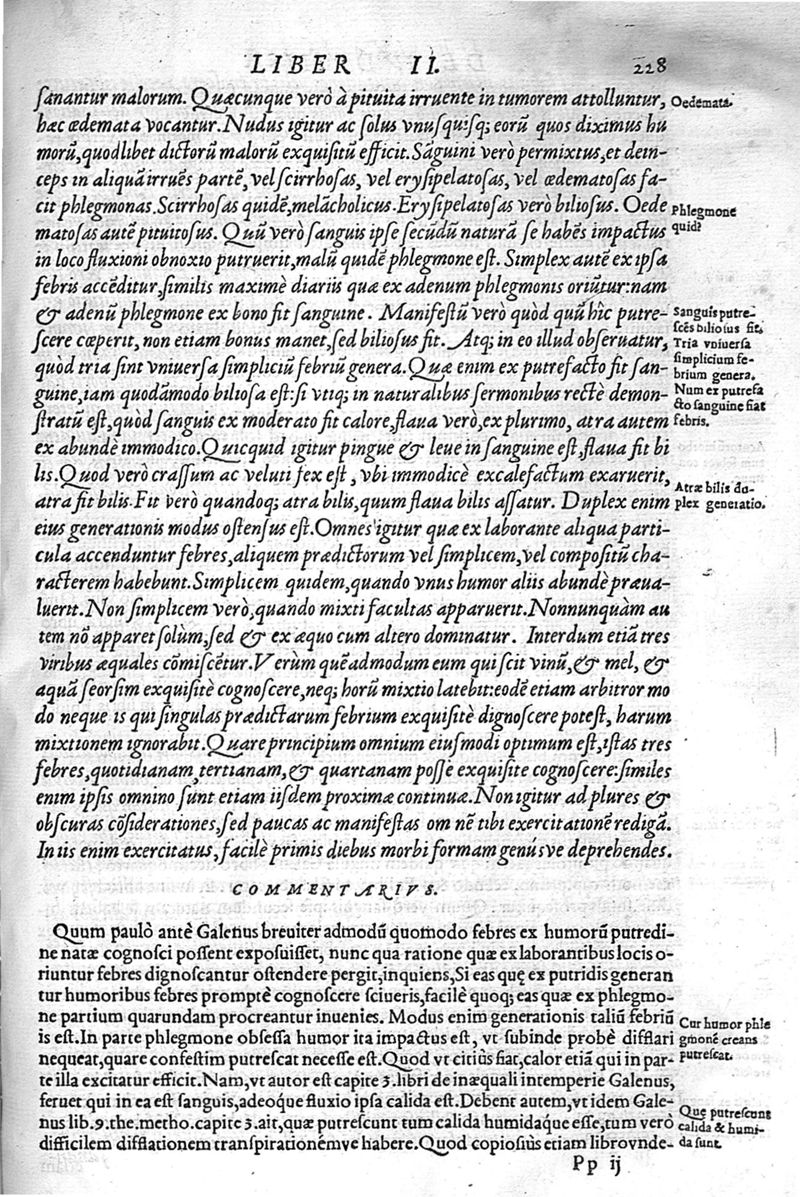 LIBER II. 228
sanantur malorum. Quæcunque verò à pituita irruente in tumorem attolluntur,
hæc œdemata vocantur. Nudus igitur ac solus vnusquisq; eorũ quos diximus hu
morũ, quodlibet dictorũ malorũ exquisitũ efficit. Sãguini verò permixtus, et dein-
ceps in aliquã irruẽs partẽ, vel scirrhosas, vel erysipelatosas, vel œdematosas fa-
cit phlegmonas. Scirrhosas quidẽ, melãcholicus. Erysipelatosas verò biliosus. Oede
matosas autẽ pituitosus. Quũ verò sanguis ipse secũdũ naturã se habẽs impactus
in loco fluxioni obnoxio putruerit, malũ quidẽ phlegmone est. Simplex autẽ ex ipsa
febris accẽditur, similis maximè diariis quæ ex adenum phlegmonis oriũtur: nam
& adenũ phlegmone ex bono fit sanguine. Manifestũ verò quòd quũ hîc putre-
scere cœperit, non etiam bonus manet, sed biliosus fit. Atq; in eo illud obseruatur,
quòd tria sint vniuersa simpliciũ febriũ genera. Quæ enim ex putrefacto fit san-
guine, iam quodãmodo biliosa est: si vtiq; in naturalibus sermonibus rectè demon-
stratũ est, quòd sanguis ex moderato fit calore, flaua verò, ex plurimo, atra autem
ex abundè immodico. Quicquid igitur pingue & leue in sanguine est, flaua fit bi
lis. Quod verò crassum ac veluti fex est, vbi immodicè excalefactum exaruerit,
atra fit bilis. Fit verò quandoq; atra bilis, quum flaua bilis assatur. Duplex enim
eius generationis modus ostensus est. Omnes igitur quæ ex laborante aliqua parti-
cula accenduntur febres, aliquem prædictorum vel simplicem, vel compositũ cha-
racterem habebunt. Simplicem quidem, quando vnus humor aliis abundè præua-
luerit. Non simplicem verò, quando mixti facultas apparuerit. Nonnunquàm au
tem nõ apparet solùm, sed & ex æquo cum altero dominatur. Interdum etiã tres
viribus æquales cõmiscẽtur. Verùm quẽadmodum eum qui scit vinũ, & mel, &
aquã seorsim exquisitè cognoscere, neq; horũ mixtio latebit: eodẽ etiam arbitror mo
do neque is qui singulas prædictarum febrium exquisitè dignoscere potest, harum
mixtionem ignorabit. Quare principium omnium eiusmodi optimum est, istas tres
febres, quotidianam, tertianam, & quartanam posse exquisite cognoscere: similes
enim ipsis omnino sunt etiam iisdem proximæ continuæ. Non igitur ad plures &
obscuras cõsiderationes, sed paucas ac manifestas omnẽ tibi exercitationẽ redigã.
In iis enim exercitatus, facilè primis diebus morbi formam genúsve deprehendes.
Oedemata.
Phlegmone
quid?
Sanguis putre-
scẽs biliosus fit.
Tria vniuersa
simplicium fe-
brium genera.
Num ex putrefa
cto sanguine fiat
febris.
Atræ bilis du-
plex generatio.
COMMENTARIVS.
Quum paulò antè Galenus breuiter admodũ quomodo febres ex humorũ putredi-
ne natæ cognosci possent exposuisset, nunc qua ratione quæ ex laborantibus locis o-
riuntur febres dignoscantur ostendere pergit, inquiens, Si eas quę ex putridis generan
tur humoribus febres promptè cognoscere sciueris, facilè quoq; eas quæ ex phlegmo-
ne partium quarundam procreantur inuenies. Modus enim generationis taliũ febriũ
is est. In parte phlegmone obsessa humor ita impactus est, vt subinde probè difflari
nequeat, quare confestim putrescat necesse est. Quod vt citiùs fiat, calor etiã qui in par-
te illa excitatur efficit. Nam, vt autor est capite 3. libri de inæquali intemperie Galenus,
feruet qui in ea est sanguis, adeóque fluxio ipsa calida est. Debent autem, vt idem Gale-
nus lib. 9. the. metho. capite 3. ait, quæ putrescunt tum calida humidáque esse, tum verò
difficilem difflationem transpirationémve habere. Quod copiosiùs etiam libro vnde-
Cur humor phle
gmonẽ creans
putrescat.
Quę putrescunt
calida & humi-
da sunt.
Pp ij